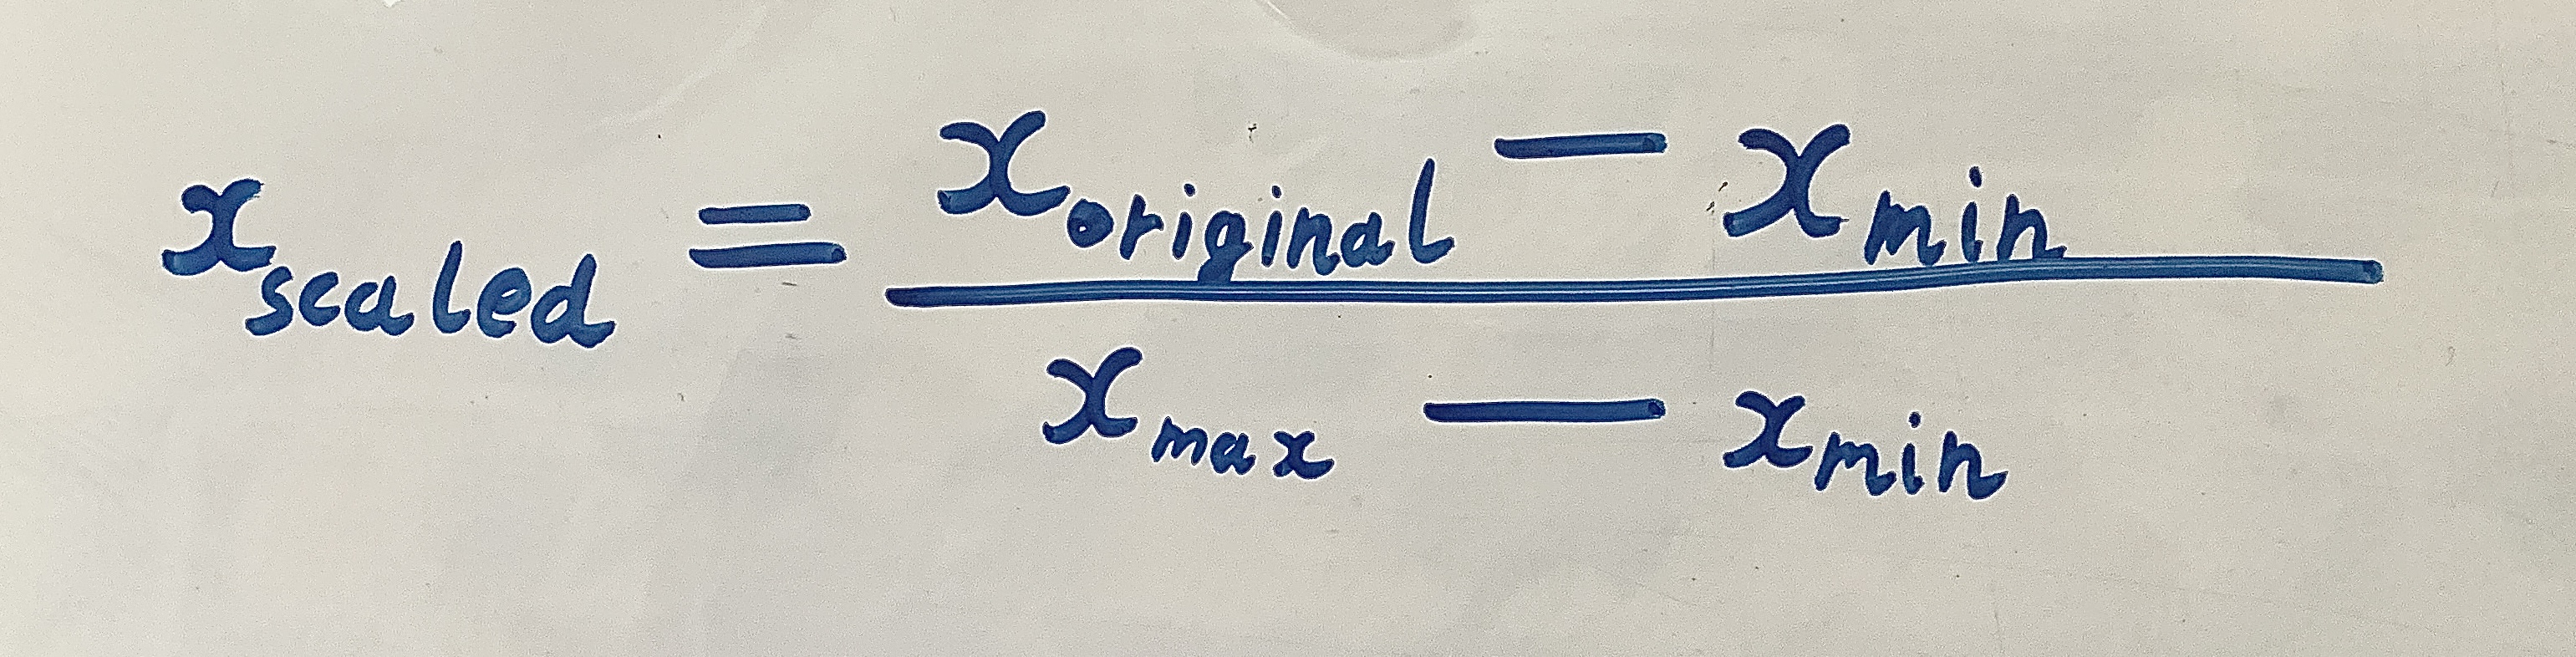 x_scaled = (x_original − x_min) / (x_max − x_min)